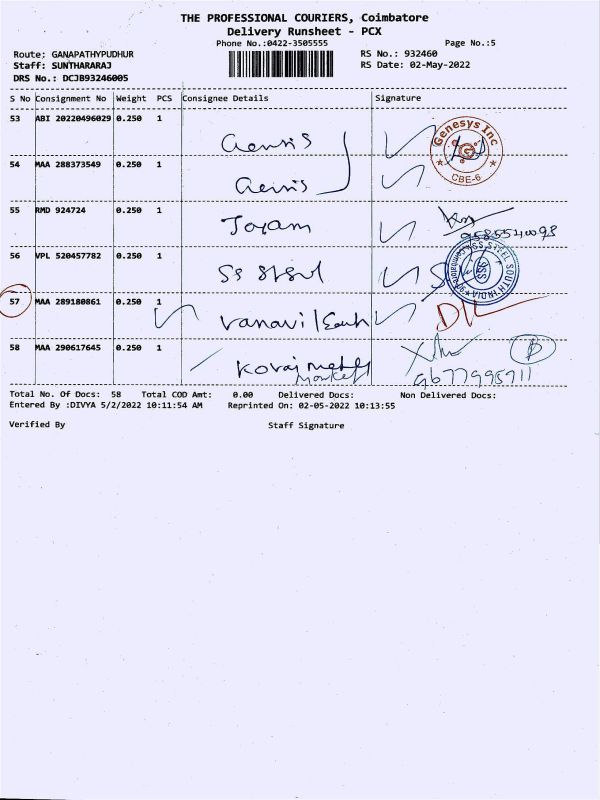 THE PROFESSIONAL COURIERS, Coimbatore
Delivery Runsheet - PCX
Phone No.:0422-3505555 Page No.:5
Route: GANAPATHYPUDHUR RS No.: 932460
Staff: SUNTHARARAJ RS Date: 02-May-2022
DRS No.: DCJB93246005
S No Consignment No Weight PCS Consignee Details Signature
53 ABI 20220496029 0.250 1
Genesys Inc
CBE-6
54 MAA 288373549 0.250 1
55 RMD 924724 0.250 1
56 VPL 520457782 0.250 1 SS
SS STEEL SOUTH INDIA
57 MAA 289180861 0.250 1 Vanavil
58 MAA 290617645 0.250 1
market
Total No. Of Docs: 58 Total COD Amt: 0.00 Delivered Docs: Non Delivered Docs:
Entered By :DIVYA 5/2/2022 10:11:54 AM Reprinted On: 02-05-2022 10:13:55
Verified By Staff Signature